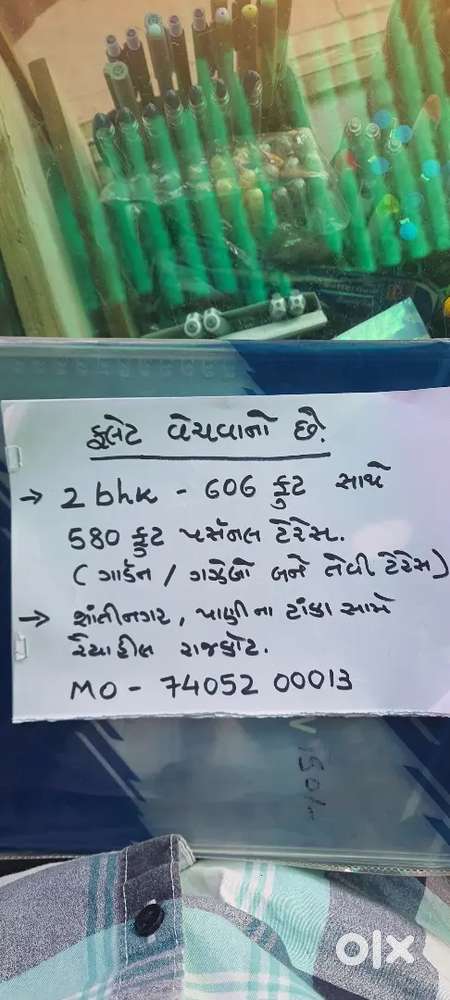 ફ્લેટ વેચવાનો છે.
→ 2 bhk - 606 ફુટ સાથે
580 ફુટ પર્સનલ ટેરેસ.
(ગાર્ડન / ગઝેબો બને તેવી ટેરેસ)
→ શાંતીનગર, પાણીના ટાંકા સામે
રૈયાહીલ રાજકોટ.
MO - 74052 00013
olx